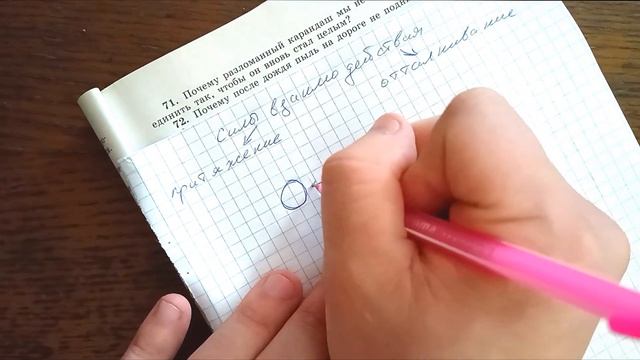 71. Почему разломанный карандаш мы не
единить так, чтобы он вновь стал целым?
72. Почему после дождя пыль на дороге не
силы взаимодействия
притяжение
отталкивание